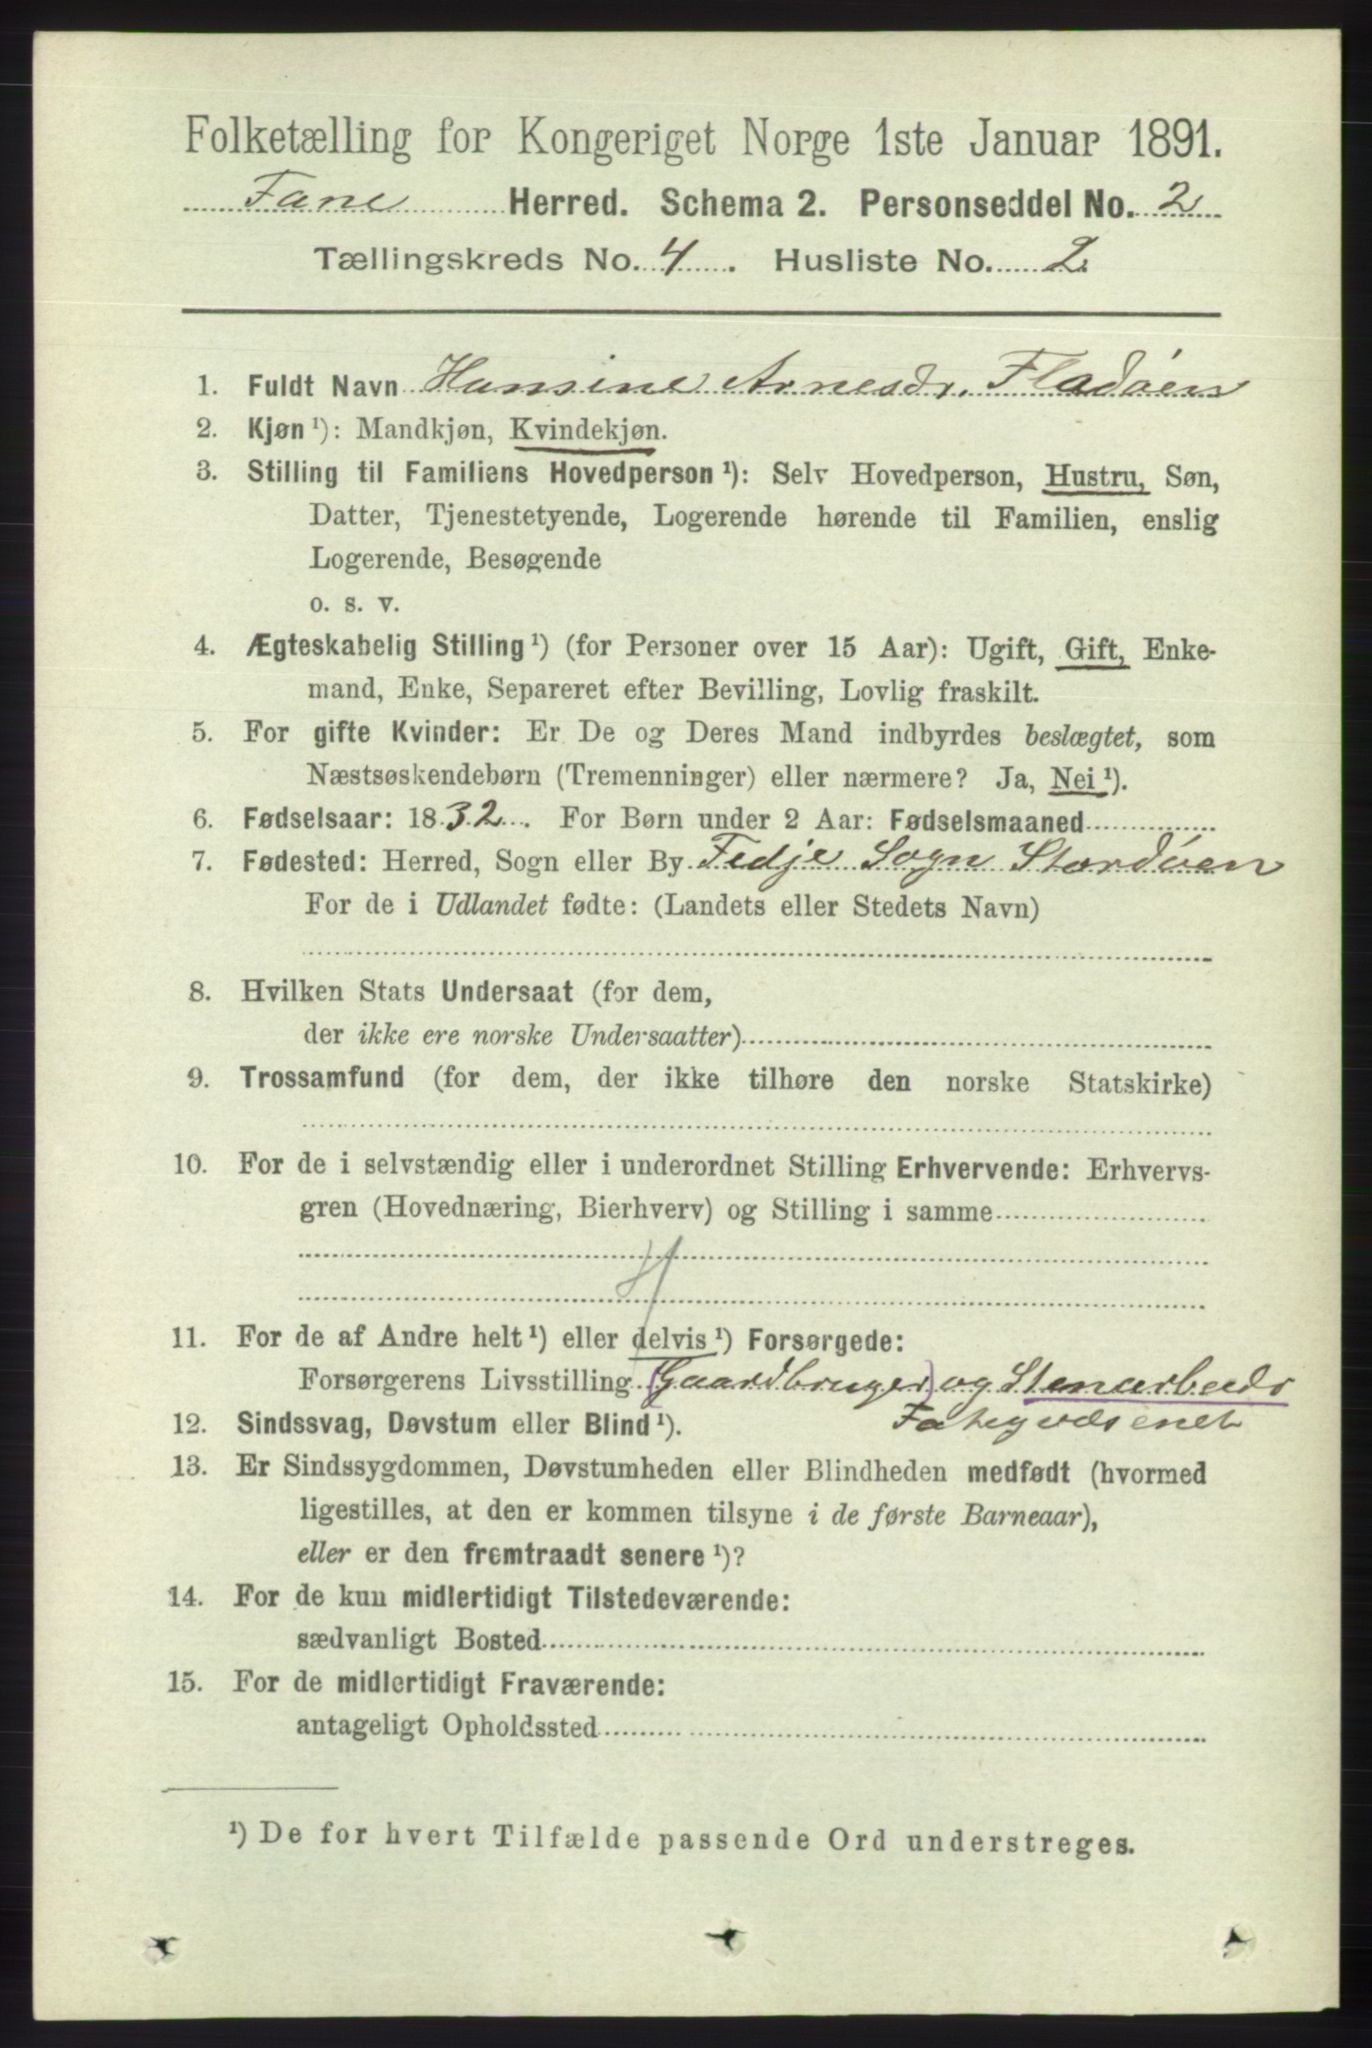 Folketælling for Kongeriget Norge 1ste Januar 1891.
Fane Herred. Schema 2. Personseddel No. 2
Tællingskreds No. 4. Husliste No. 2
1. Fuldt Navn Hansine Arnesdr. Fladøen
2. Kjøn ¹): Mandkjøn, Kvindekjøn.
3. Stilling til Familiens Hovedperson ¹): Selv Hovedperson, Hustru, Søn,
Datter, Tjenestetyende, Logerende hørende til Familien, enslig
Logerende, Besøgende
o. s. v.
4. Ægteskabelig Stilling ¹) (for Personer over 15 Aar): Ugift, Gift, Enke-
mand, Enke, Separeret efter Bevilling, Lovlig fraskilt.
5. For gifte Kvinder: Er De og Deres Mand indbyrdes beslægtet, som
Næstsøskendebørn (Tremenninger) eller nærmere? Ja, Nei ¹).
6. Fødselsaar: 1832. For Børn under 2 Aar: Fødselsmaaned
7. Fødested: Herred, Sogn eller By Fedje Sogn Stordøen
For de i Udlandet fødte: (Landets eller Stedets Navn)
8. Hvilken Stats Undersaat (for dem,
der ikke ere norske Undersaatter)
9. Trossamfund (for dem, der ikke tilhøre den norske Statskirke)
10. For de i selvstændig eller i underordnet Stilling Erhvervende: Erhvervs-
gren (Hovednæring, Bierhverv) og Stilling i samme
H
11. For de af Andre helt ¹) eller delvis ¹) Forsørgede:
Forsørgerens Livsstilling (Gaardbruger) og Stenarbeidr
12. Sindssvag, Døvstum eller Blind ¹). Fategvæsenet
13. Er Sindssygdommen, Døvstumheden eller Blindheden medfødt (hvormed
ligestilles, at den er kommen tilsyne i de første Barneaar),
eller er den fremtraadt senere ¹)?
14. For de kun midlertidigt Tilstedeværende:
sædvanligt Bosted
15. For de midlertidigt Fraværende:
antageligt Opholdssted
¹) De for hvert Tilfælde passende Ord understreges.